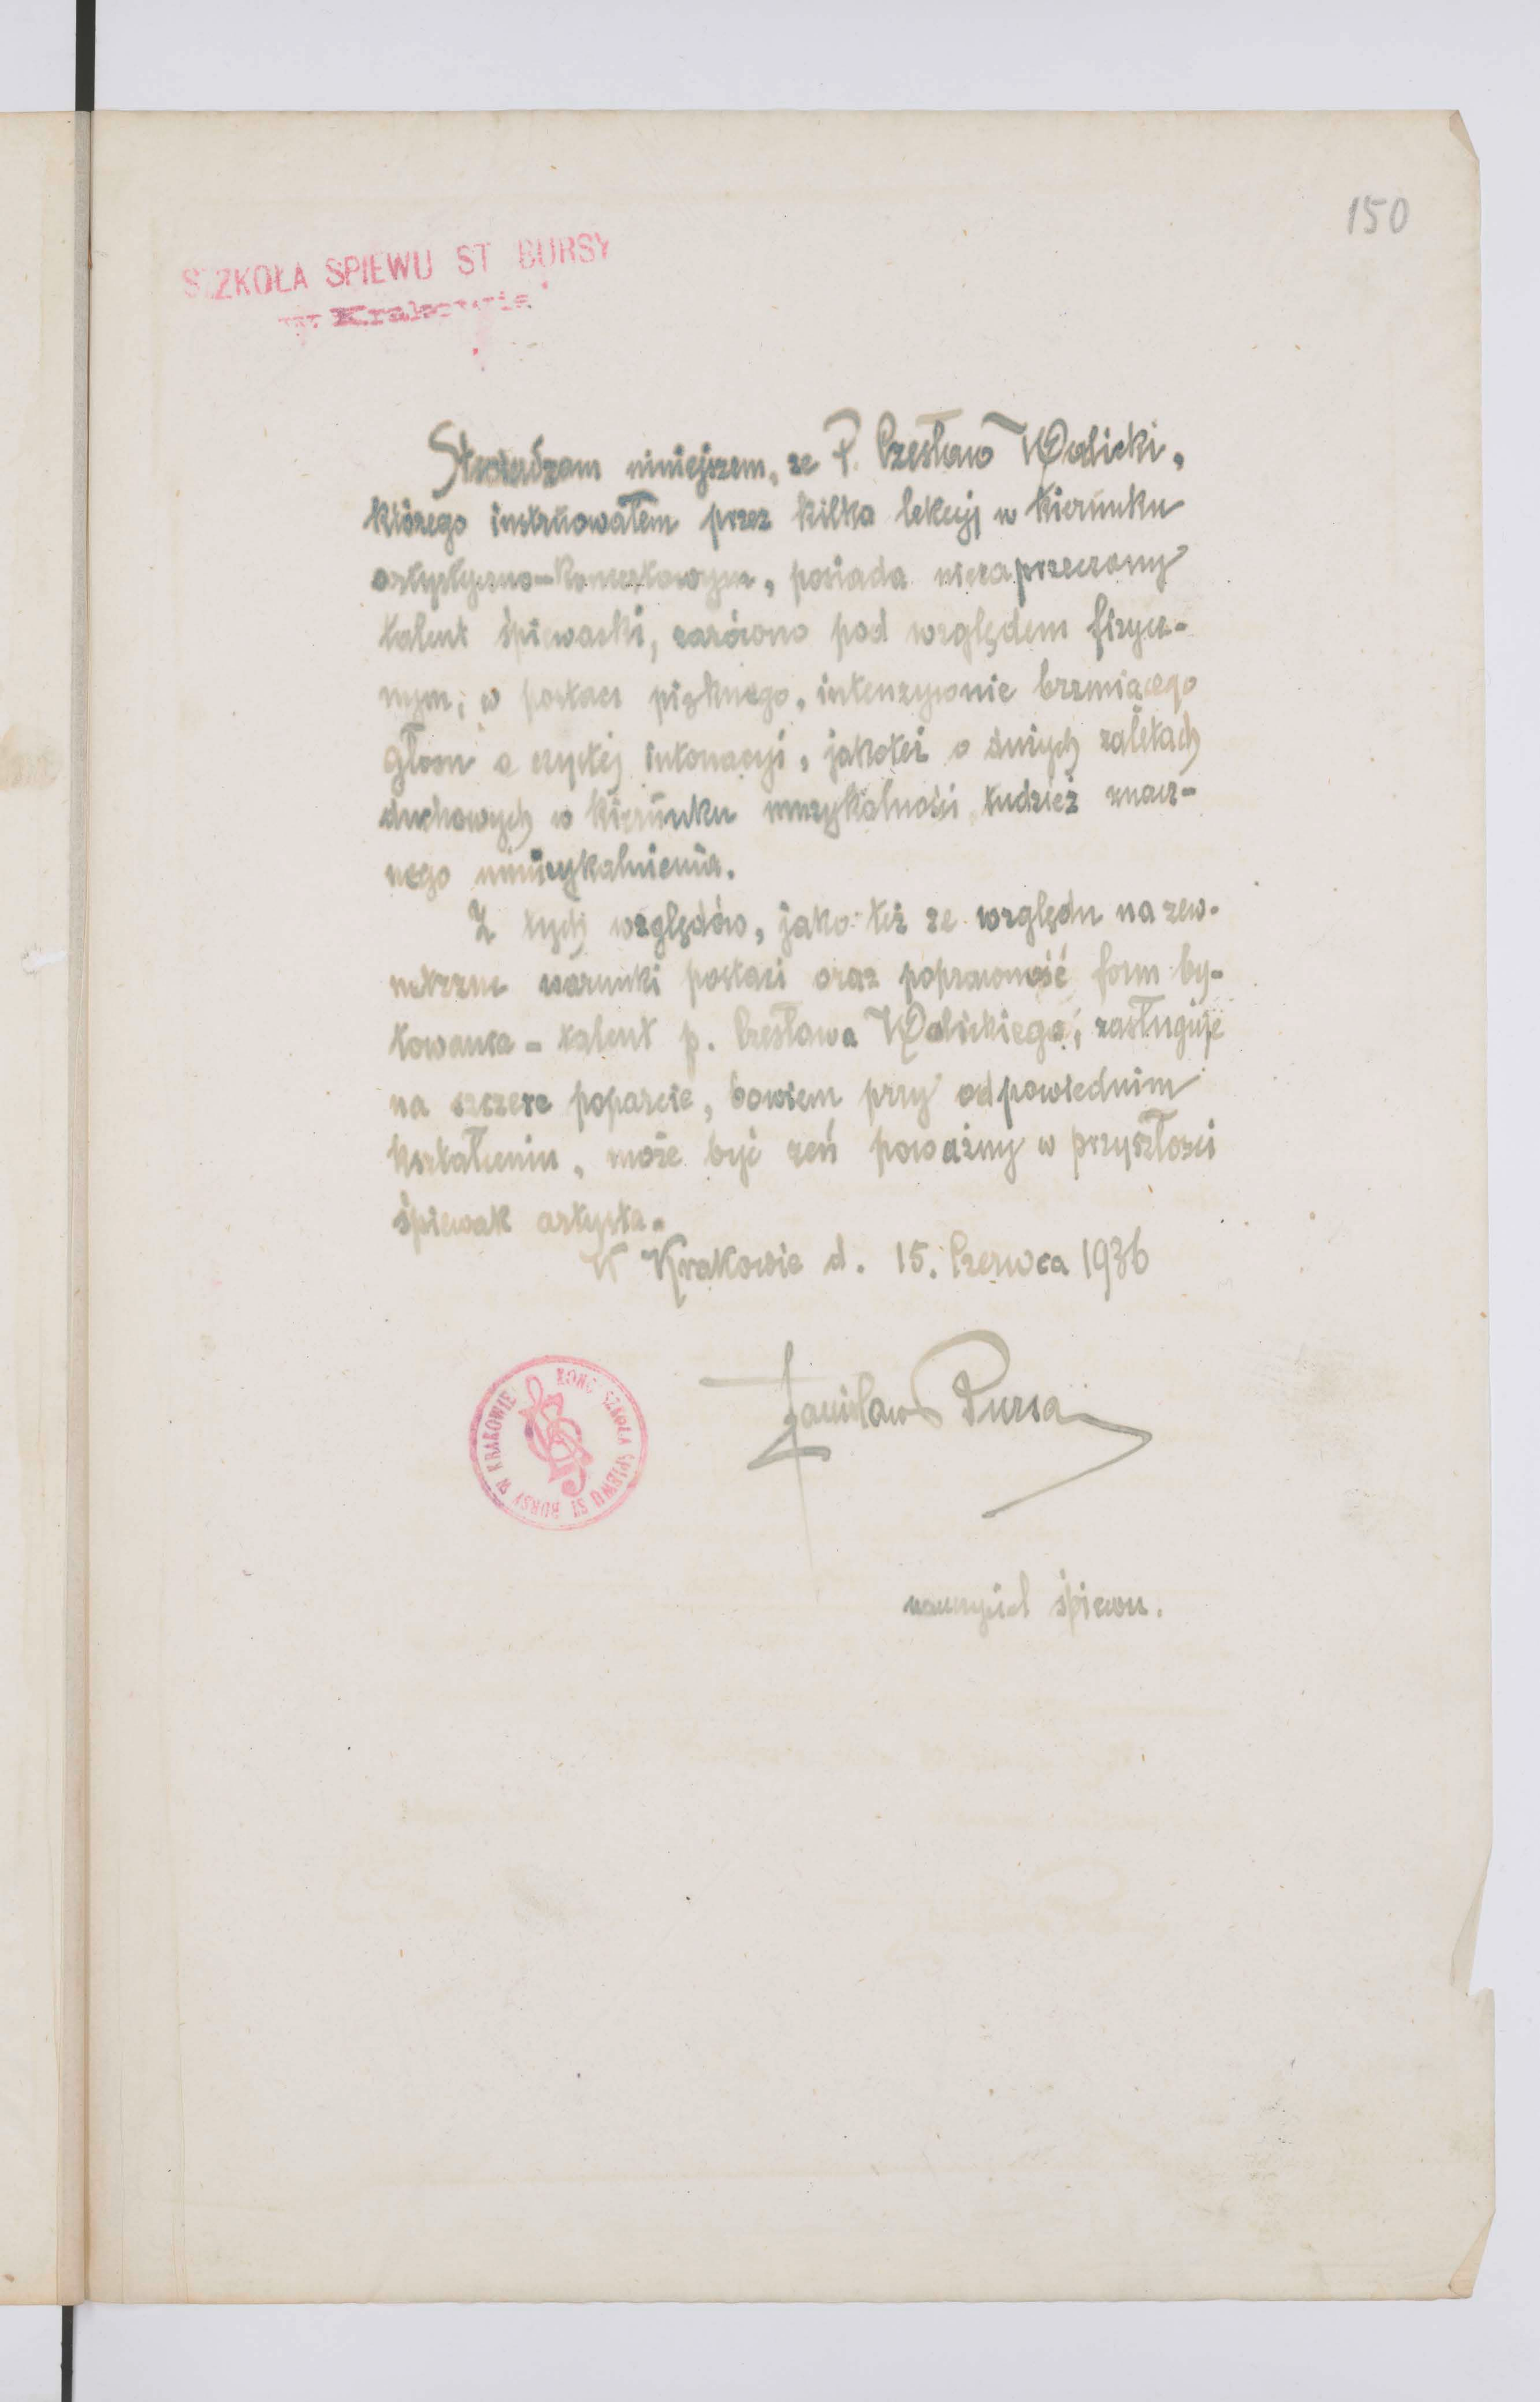 150
SZKOŁA SPIEWU ST BURSY
w Krakowie
Stwierdzam niniejszem, że P. Czesław Walicki,
którego instruowałem przez kilka lekcyj w kierunku
artystyczno-koncertowym, posiada niezaprzeczony
talent śpiewacki, zarówno pod względem fizycz-
nym; w postaci pięknego, intenzywnie brzmiącego
głosu o czystej intonacyi, jakoteż o dużych zaletach
duchowych w kierunku muzykalności tudzież znacz-
nego umuzykalnienia.
Z tych względów, jako też ze względu na zew-
nętrzne warunki postaci oraz poprawność form by-
towania - talent p. Czesława Walickiego, zasługuje
na szczere poparcie, bowiem przy odpowiednim
kształceniu, może być zeń poważny w przyszłości
śpiewak artysta.
W Krakowie d. 15. Czerwca 1936
Stanisław Bursa
KONC SZKOŁA ŚPIEWU ST BURSY W KRAKOWIE
nauczyciel śpiewu.